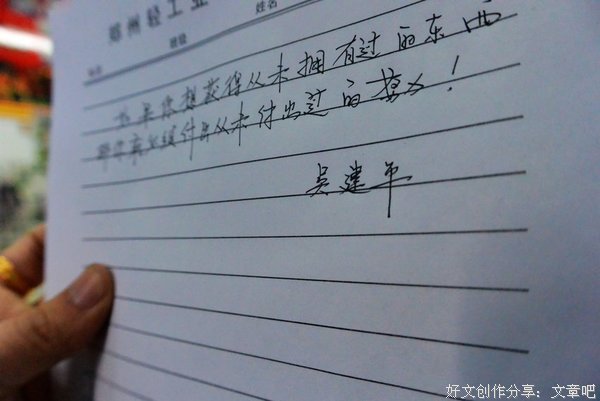 郑州轻工业
班级 姓名
如果你想获得从未拥有过的东西
那你就必须付出从未付出过的努力！
吴建平
好文创作分享：文章吧